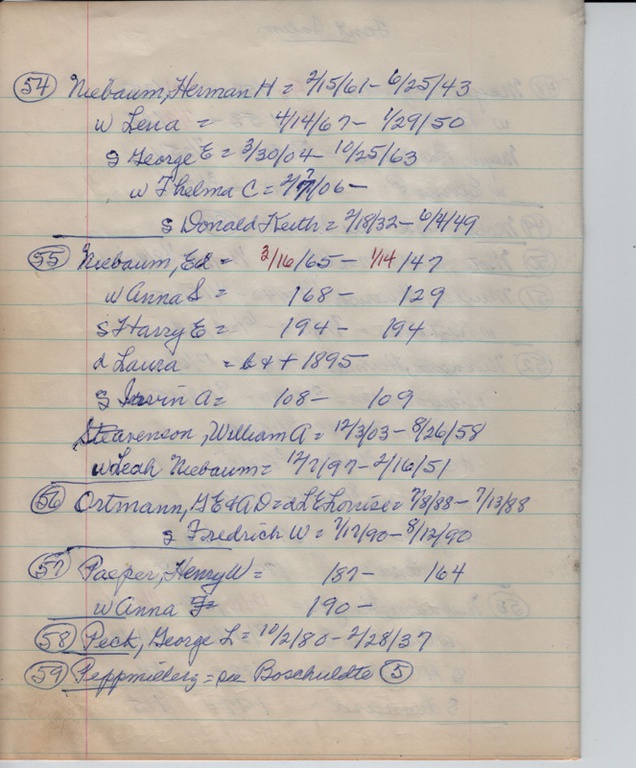 54 Niebaum, Herman H = 2/15/61 - 6/25/43
w Lena = 4/14/67 - 1/29/50
s George E = 3/30/04 - 10/25/63
w Thelma C = 2/7/06 -
s Donald Keith = 2/18/32 - 6/4/49
55 Niebaum, Ed = 2/16/65 - 1/14/47
w Anna S = 168 - 129
s Harry E = 194 - 194
d Laura = b & + 1895
s Irvin A = 108 - 109
Steavenson, William A = 12/3/03 - 8/26/58
w Leah Niebaum = 12/7/97 - 2/16/51
56 Ortmann, G E & A D = d L E Louise = 7/8/88 - 7/13/88
s Fredrich W = 7/17/90 - 8/12/90
57 Paeper, Henry W = 187 - 164
w Anna = 190 -
58 Peck, George L = 10/2/80 - 2/28/37
59 = see Boschuldte 5